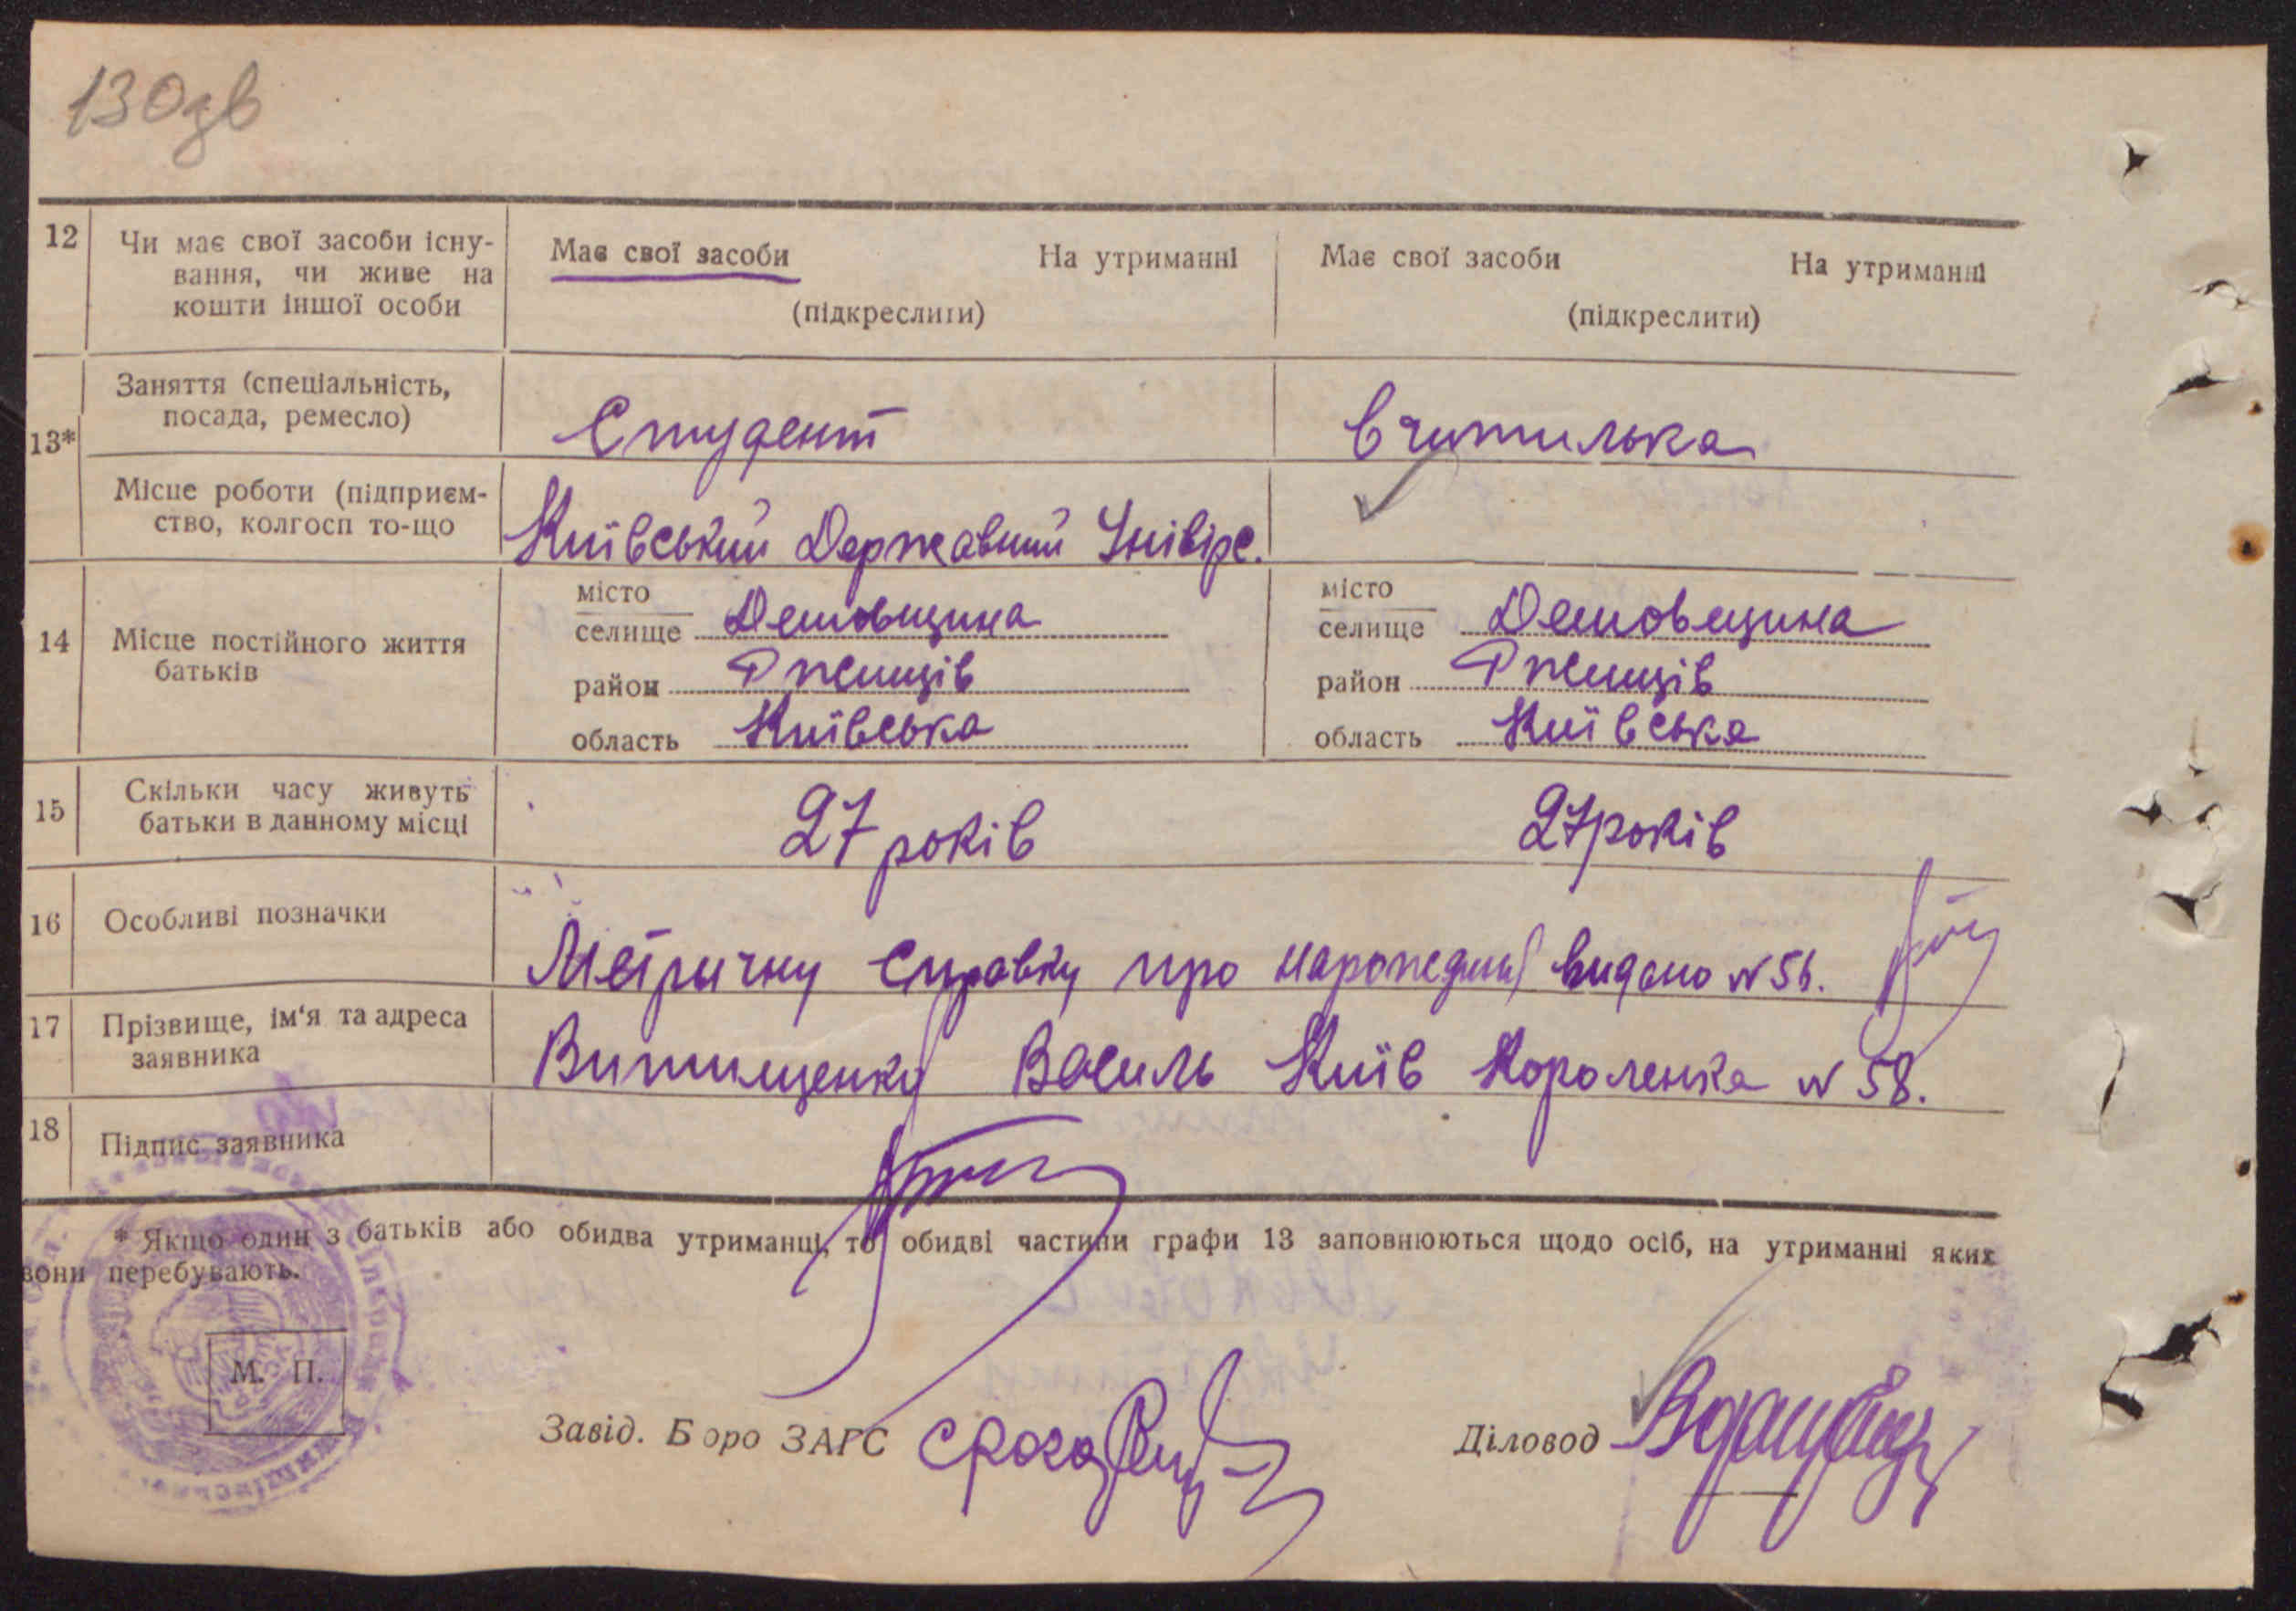 130зв
12 Чи має свої засоби існу- Має свої засоби На утриманні Має свої засоби На утриманні
вання, чи живе на
кошти іншої особи (підкреслити) (підкреслити)
13* Заняття (спеціальність, Студент Вчителька
посада, ремесло)
Місце роботи (підприєм- Київський Державний Універс.
ство, колгосп то-що
14 Місце постійного життя місто місто
батьків селище Демовщина селище Демовщина
район Ржищів район Ржищів
область Київська область Київська
15 Скільки часу живуть 27 років 27 років
батьки в данному місці
16 Особливі позначки Метричну справку про народження видано № 56.
17 Прізвище, ім'я та адреса Василь Київ Короленка № 58.
заявника
18 Підпис заявника
* Якщо один з батьків або обидва утриманці, то обидві частини графи 13 заповнюються щодо осіб, на утриманні яких
вони перебувають.
М. П.
Завід. Бюро ЗАГС Діловод